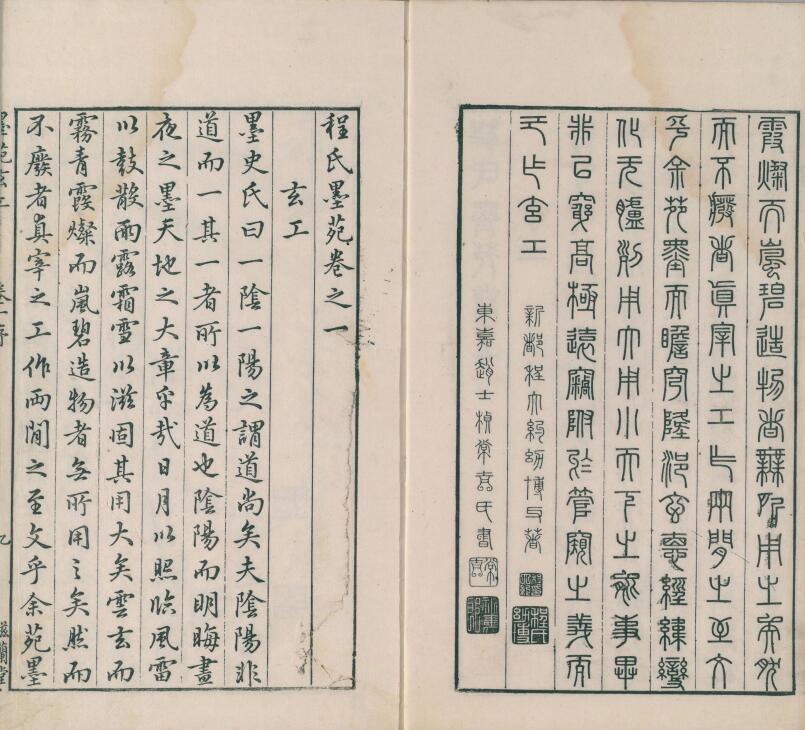 霞燦而嵐碧造物者無所用之矣然
而不廢者眞宰之工作兩閒之至文
乎余苑墨而瞻穹隆浥玄悳經緯變
化无臚列用大用小而下之能事畢
非以窮高極遠竊附於管窺之義
作玄工
新都程大約幼博父著
東嘉趙士楨常吉氏書
程氏幼博
程氏墨苑卷之一
玄工
墨史氏曰一陰一陽之謂道尚矣夫陰陽非
道而一其一者所以為道也陰陽而明晦晝
夜之墨天地之大章乎哉日月以照臨風雷
以鼓散雨露霜雪以滋固其用大矣雲玄而
霧青霞燦而嵐碧造物者無所用之矣然而
不廢者真宰之工作兩閒之至文乎余苑墨
墨苑玄工 卷一序 九 滋蘭堂